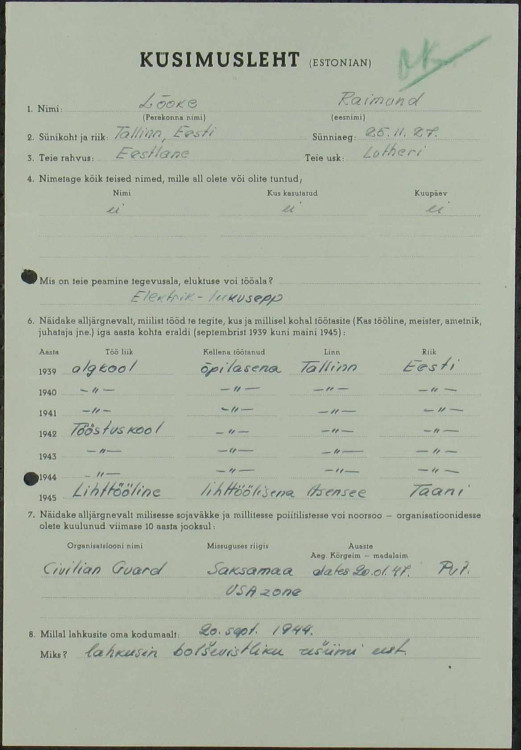 KÜSIMUSLEHT (ESTONIAN)
OK
1. Nimi: Lööke Raimund
(Perekonna nimi) (eesnimi)
2. Sünikoht ja riik: Tallinn, Eesti Sünniaeg: 25. 11. 27.
3. Teie rahvus: Eestlane Teie usk: Lutheri
4. Nimetage kõik teised nimed, mille all olete või olite tuntud;
Nimi Kus kasutatud Kuupäev
ei ei ei
Mis on teie peamine tegevusala, eluktuse voi tööala?
Elektrik-lukusepp
6. Näidake alljärgnevalt, miilist tööd te tegite, kus ja millisel kohal töötasite (Kas tööline, meister, ametnik,
juhataja jne.) iga aasta kohta eraldi (septembrist 1939 kuni maini 1945):
Aasta Töö liik Kellena töötanud Linn Riik
1939 algkool õpilasena Tallinn Eesti
1940 —"— —"— —"— —"—
1941 —"— —"— —"— —"—
1942 Tööstuskool —"— —"— —"—
1943 —"— —"— —"— —"—
1944 —"— —"— —"— —"—
1945 Lihttööline lihttöölisena Taani
7. Näidake alljärgnevalt milisesse sojaväkke ja millitesse poiitilistesse voi noorsoo — organisatioonidesse
olete kuulunud viimase 10 aasta jooksul:
Organisatsiooni nimi Missuguses riigis Auaste
Aeg. Kõrgeim — madalaim
Civilian Guard Saksamaa dates 20.01.47. Pvt.
USA zone
8. Millal lahkusite oma kodumaalt: 20. sept. 1944.
Miks? lahkusin bolševistliku